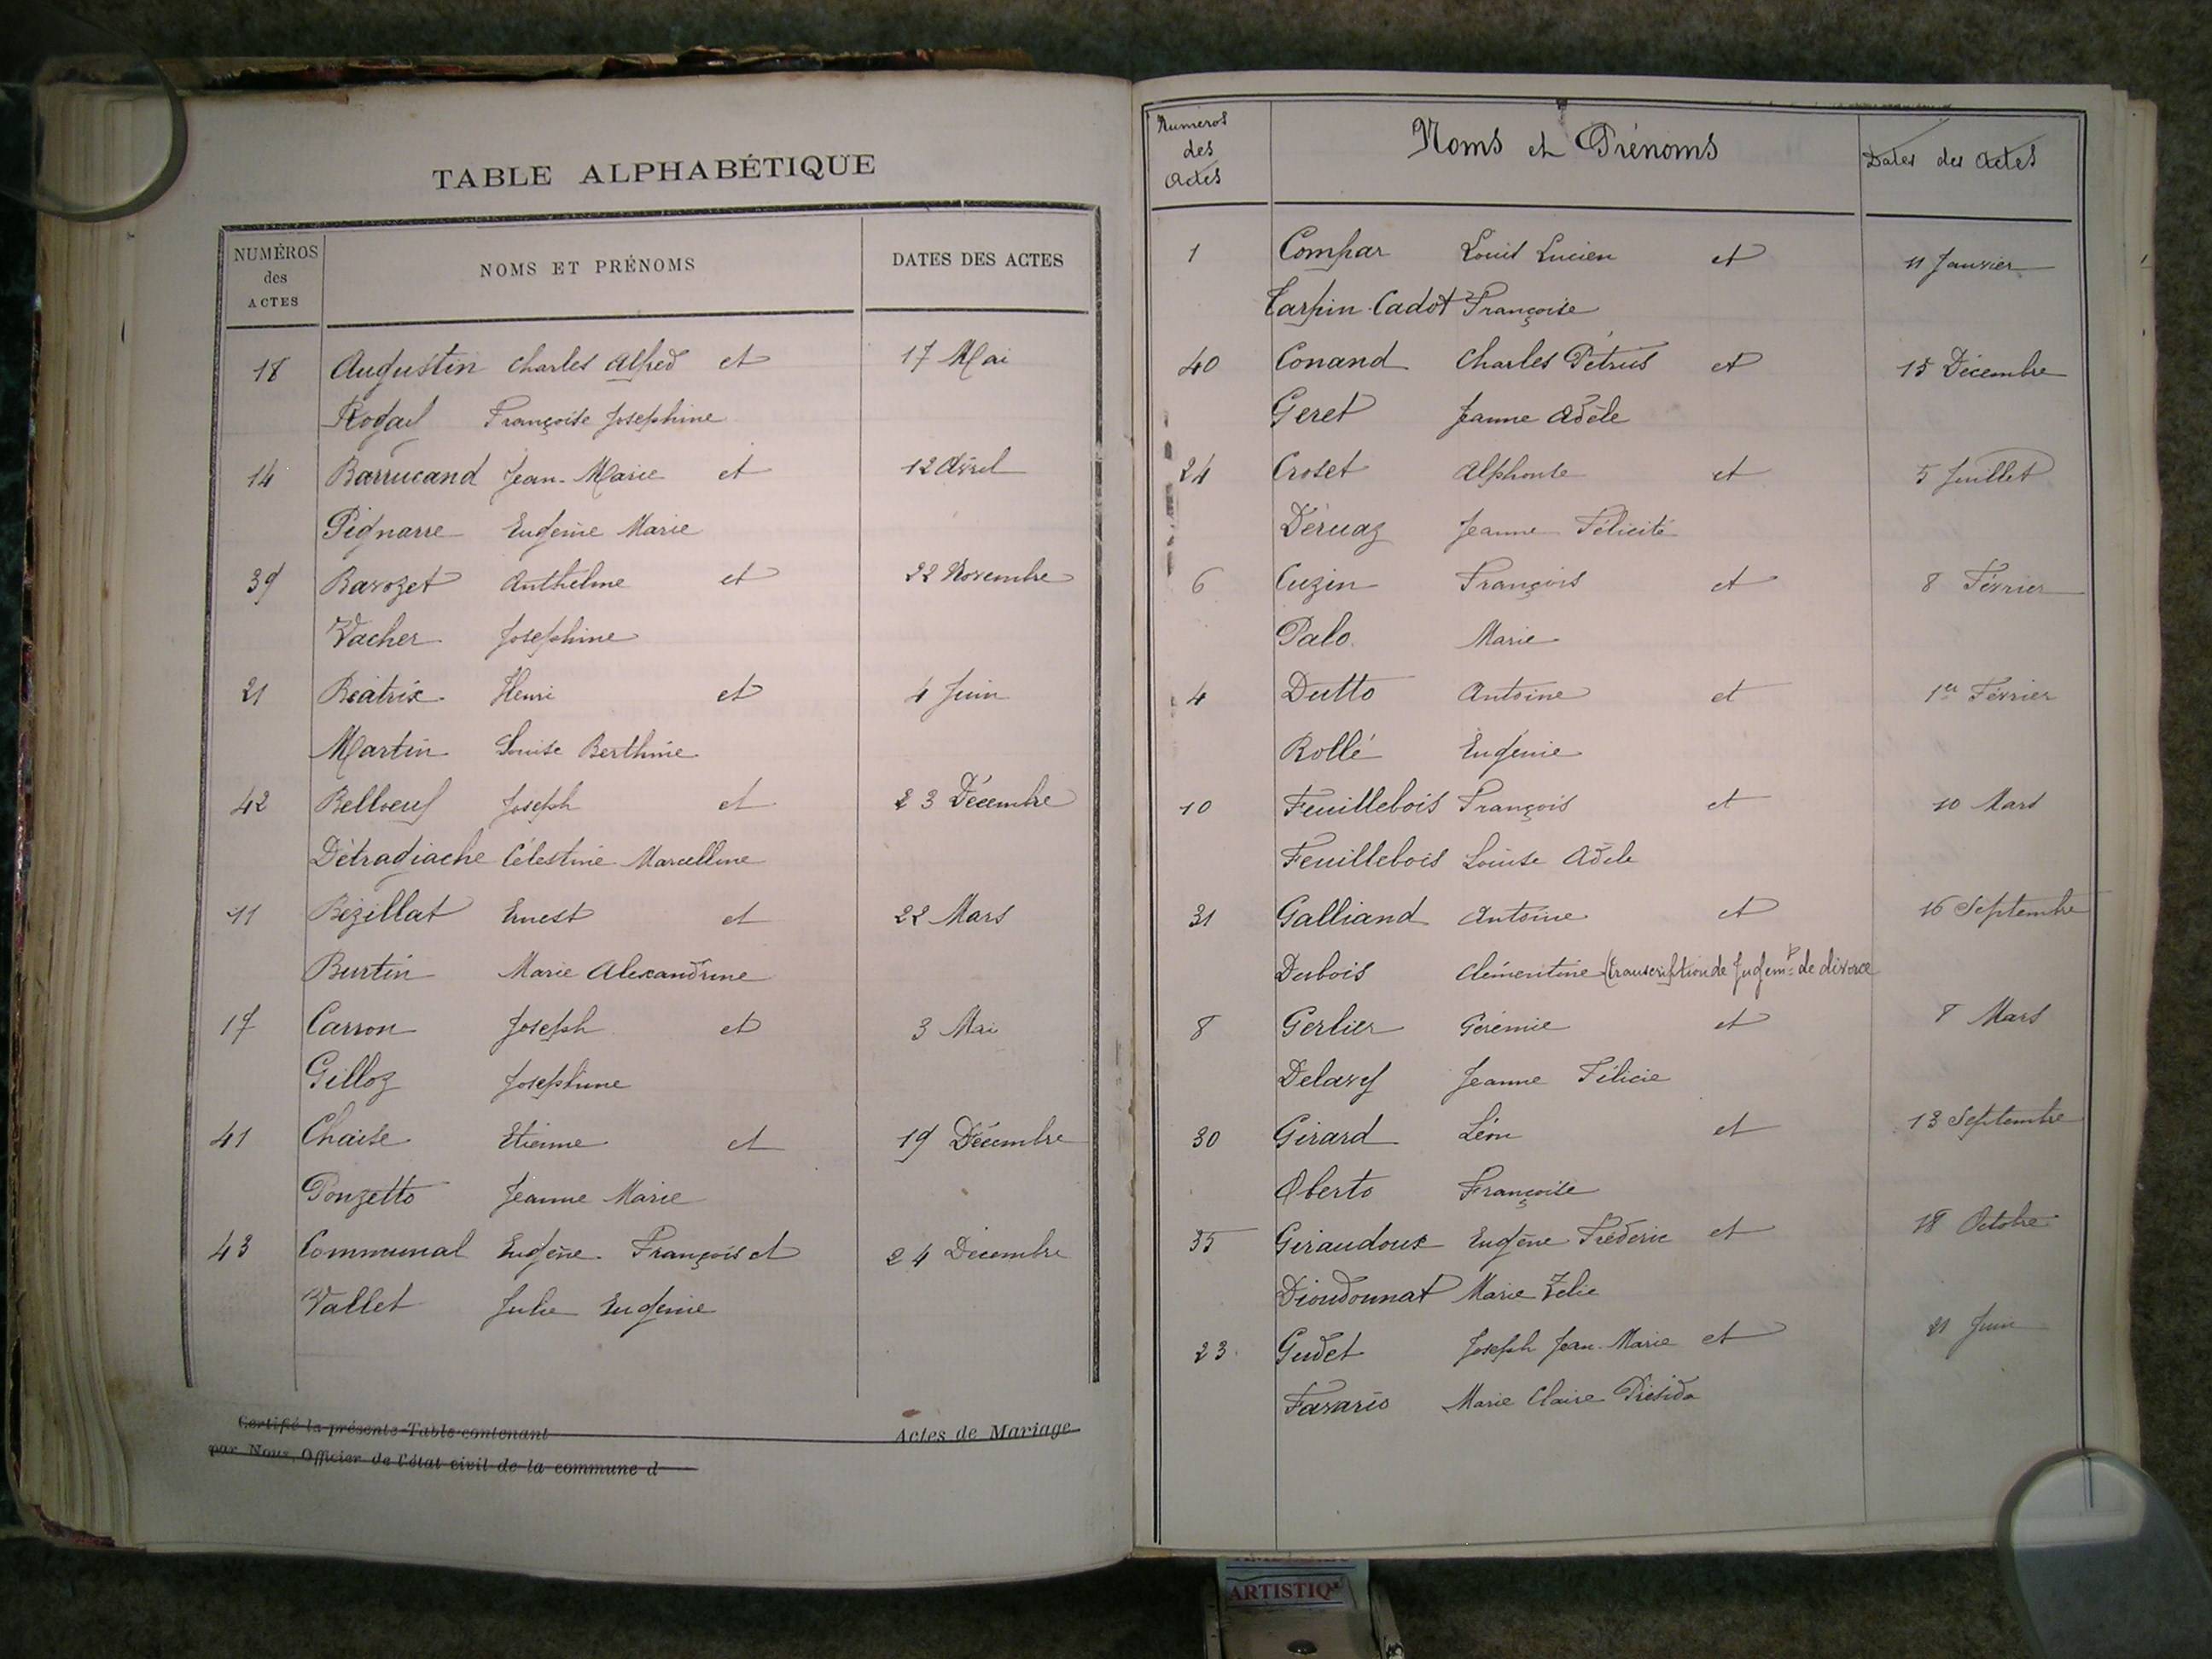 TABLE ALPHABÉTIQUE
NUMÉROS des ACTES
NOMS ET PRÉNOMS
DATES DES ACTES
18 Augustin Charles Alfred et 17 Mai
Françoise Josephine
14 Barrucand Jean-Marie et 12 Avril
Pignarre Eugénie Marie
39 Bavozet Anthelme et 22 Novembre
Vacher Josephine
21 Béatrix Henri et 4 Juin
Martin Louise Berthine
42 Belloeuf Joseph et 23 Décembre
Détragiache Célestine Marcelline
11 Bézillat Ernest et 22 Mars
Burtin Marie Alexandrine
17 Carron Joseph et 3 Mai
Gilloz Josephine
41 Chaise Etienne et 19 Décembre
Ponzetto Jeanne Marie
43 Communal Eugène François et 24 Décembre
Vallet Julie Eugénie
Certifié la présente Table contenant Actes de Mariage
par Nous, Officier de l'état civil de la commune d
Numeros des Actes
Noms et Prénoms
Dates des Actes
1 Compar Louis Lucien et 11 Janvier
Tarpin-Cadot Françoise
40 Conand Charles Pétrus et 15 Décembre
Geret Jeanne Adèle
24 Croset Alphonse et 5 Juillet
Déruaz Jeanne Félicité
6 Cuzin François et 8 Février
Palo Marie
4 Dutto Antoine et 1er Février
Rollé Eugénie
10 Feuillebois François et 10 Mars
Feuillebois Louise Adèle
31 Galliand Antoine et 16 Septembre
Dubois Clémentine (transcription de Jugemt de divorce
8 Gerlier Gérémie et 8 Mars
Jeanne Félicie
30 Girard Léon et 13 Septembre
Oberto Françoise
35 Giraudoux Eugène Fréderic et 18 Octobre
Dioudonnat Marie Zelie
23 Gudet Joseph Jean-Marie et 21 Juin
Favario Marie Claire
ARTISTIQ